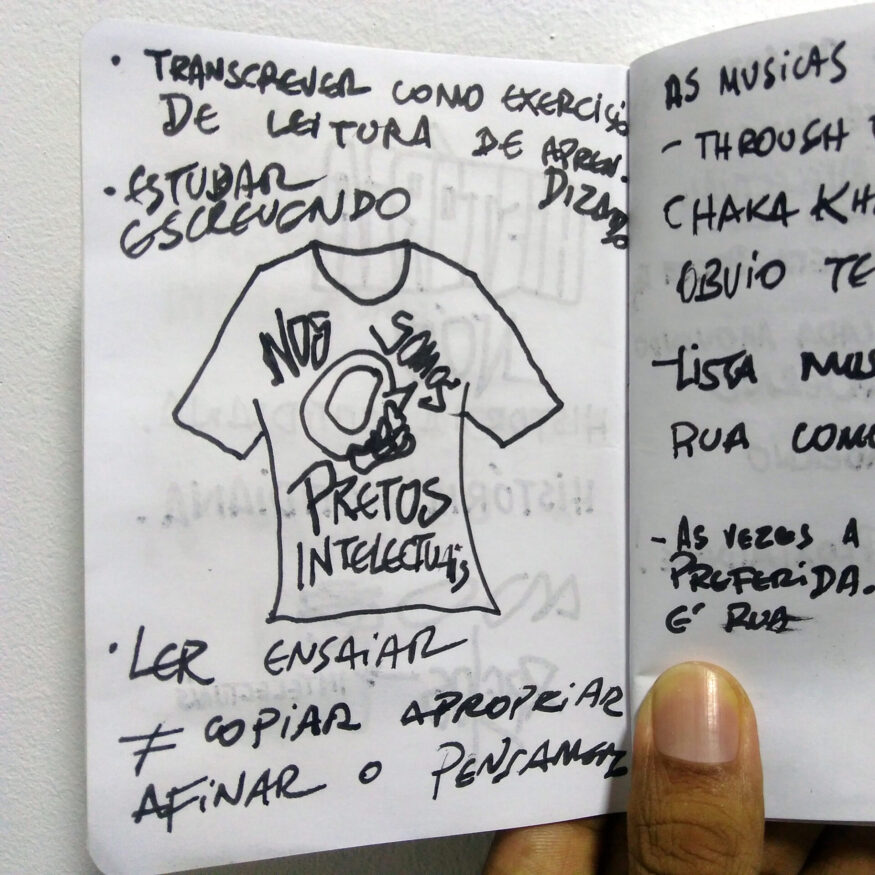 • TRANSCREVER COMO EXERCICIO
DE LEITURA DE APREN-
DIZADO
• ESTUDAR
ESCREVENDO
NOS SOMOS
PRETOS
INTELECTUAIS
• LER ENSAIAR
≠ COPIAR APROPRIAR
AFINAR O
AS MUSICAS
- THROUGH
CHAKA
OBVIO TE
- LISTA
RUA
- AS VEZES A
PREFERIDA.
E' RUA